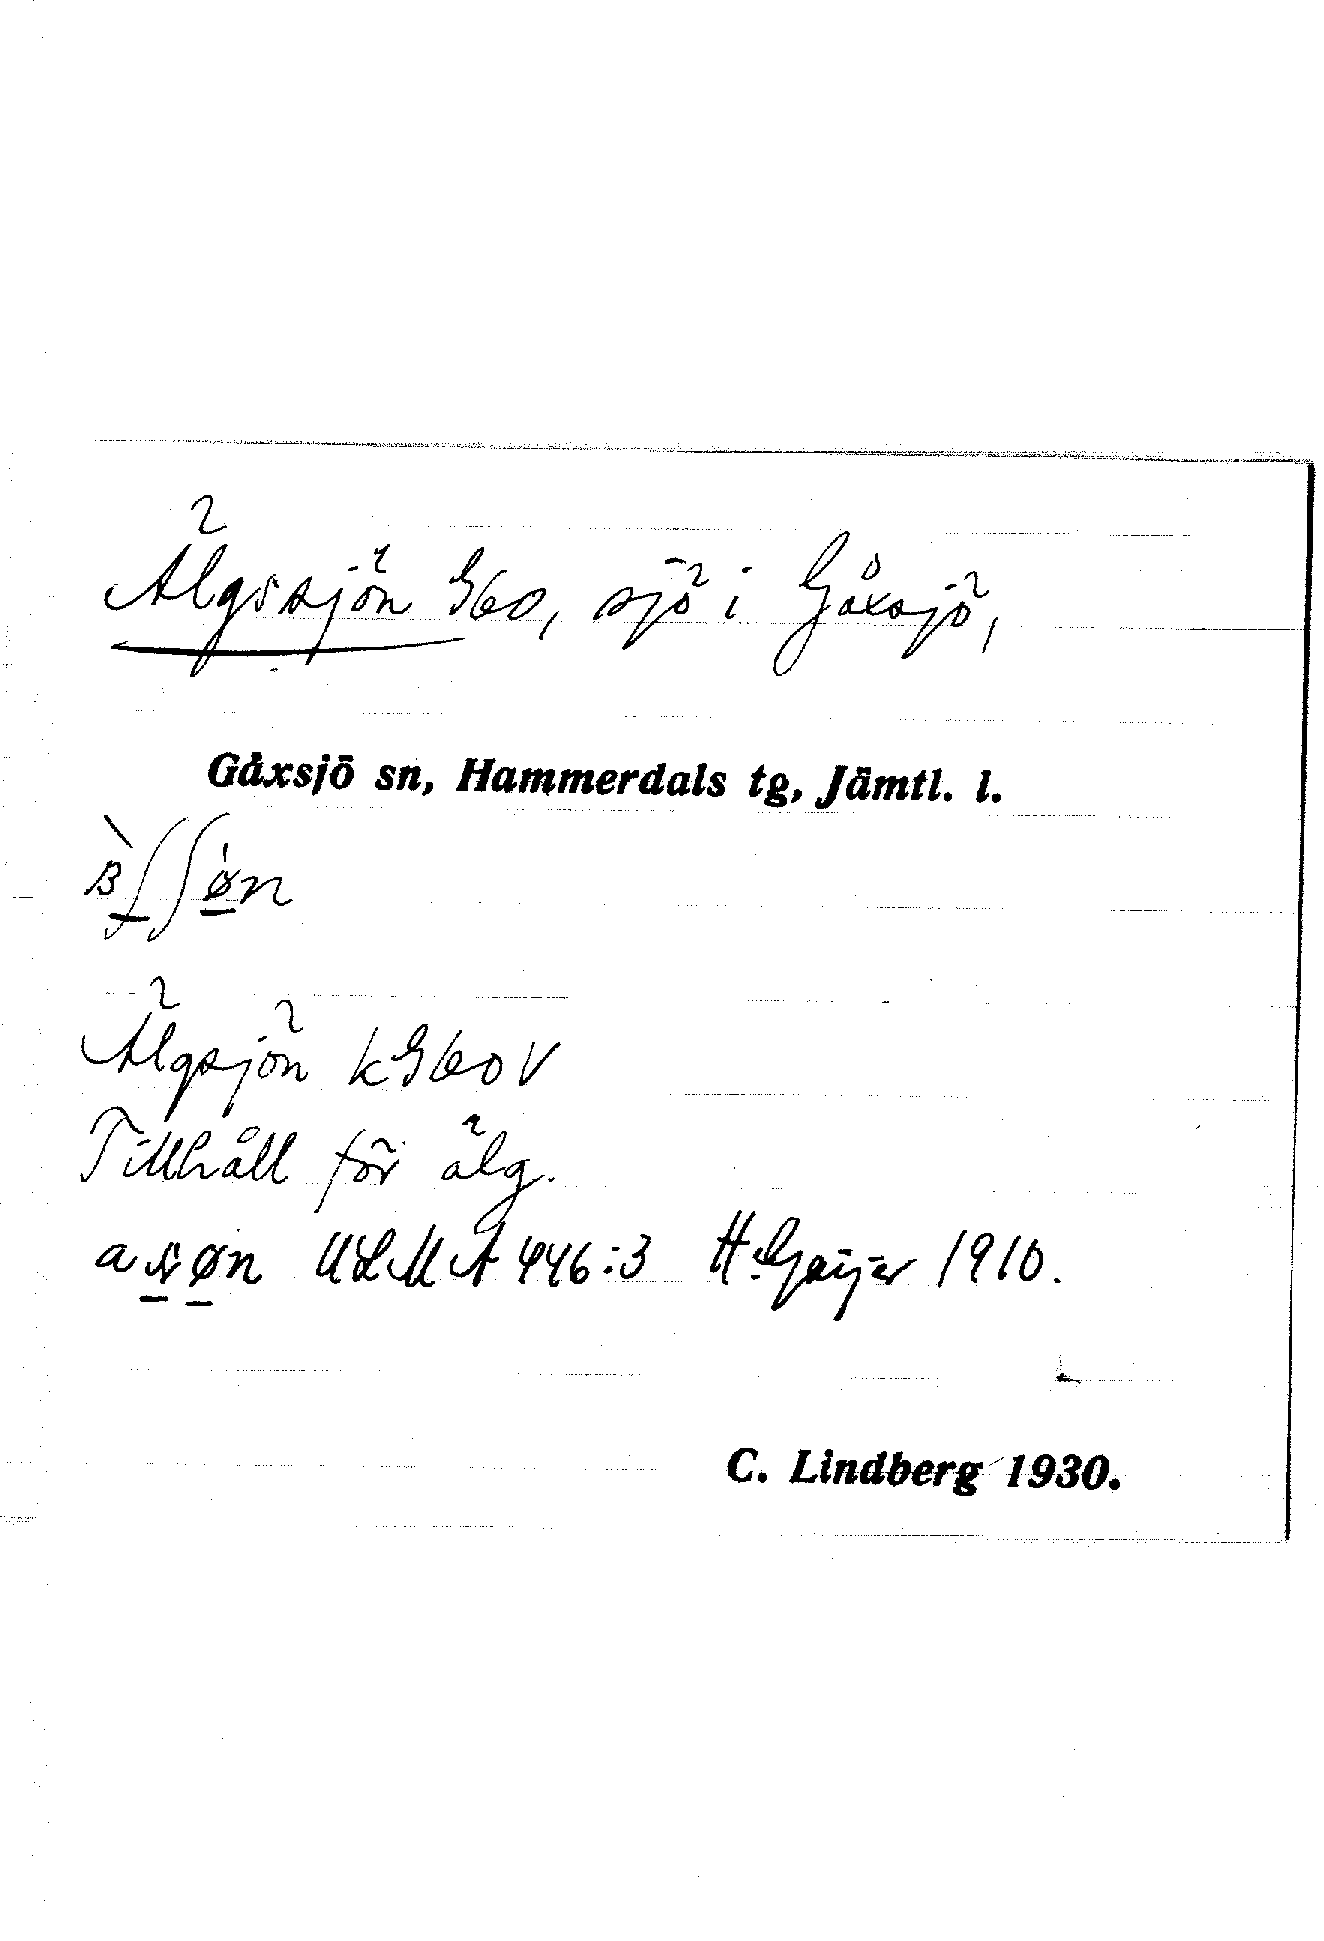 Älgssjön G60, sjö i Gåxsjö,
Gåxsjö sn, Hammerdals tg, Jämtl. l.
Älgsjön k G60V
Tillhåll för älg.
ULMA 446:3 H. Geijer 1910.
C. Lindberg 1930.